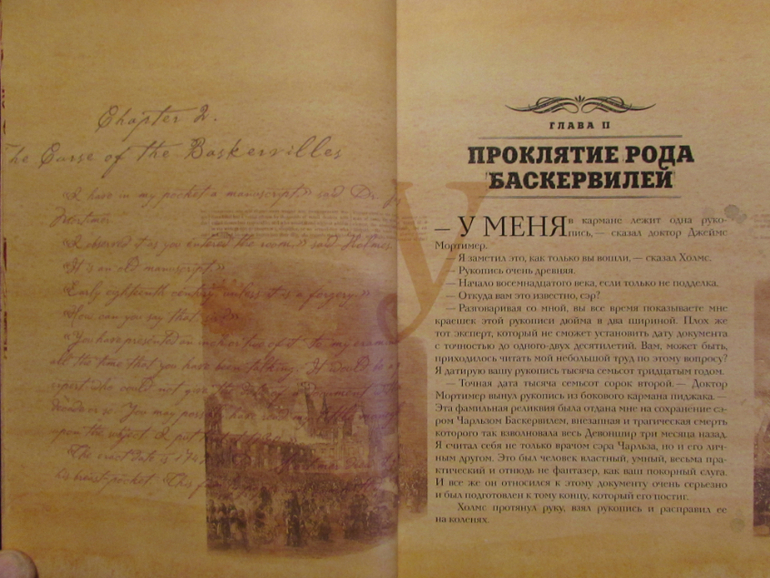 Chapter 2.
The Curse of the Baskervilles
«I have in my pocket a manuscript,» said Dr.
Mortimer.
«I observed it as you entered the room,» said Holmes.
«It is an old manuscript.»
«Early eighteenth century, unless it is a forgery.»
«How can you say that,
«You have presented an inch or two of it to my
all the time that you have been talking. It would be a
expert who could not give the date of a document
decade or so. You may
upon the subject. I put
«The exact date is
his breast-pocket. «This
ГЛАВА II
ПРОКЛЯТИЕ РОДА
БАСКЕРВИЛЕЙ
У
— У МЕНЯ в кармане лежит одна руко-
пись, — сказал доктор Джеймс
Мортимер.
— Я заметил это, как только вы вошли, — сказал Холмс.
— Рукопись очень древняя.
— Начало восемнадцатого века, если только не подделка.
— Откуда вам это известно, сэр?
— Разговаривая со мной, вы все время показываете мне
краешек этой рукописи дюйма в два шириной. Плох же
тот эксперт, который не сможет установить дату документа
с точностью до одного-двух десятилетий. Вам, может быть,
приходилось читать мой небольшой труд по этому вопросу?
Я датирую вашу рукопись тысяча семьсот тридцатым годом.
— Точная дата тысяча семьсот сорок второй. — Доктор
Мортимер вынул рукопись из бокового кармана пиджака. —
Эта фамильная реликвия была отдана мне на сохранение сэ-
ром Чарльзом Баскервилем, внезапная и трагическая смерть
которого так взволновала весь Девоншир три месяца назад.
Я считал себя не только врачом сэра Чарльза, но и его лич-
ным другом. Это был человек властный, умный, весьма пра-
ктический и отнюдь не фантазер, как ваш покорный слуга.
И все же он относился к этому документу очень серьезно
и был подготовлен к тому концу, который его постиг.
Холмс протянул руку, взял рукопись и расправил ее
на коленях.